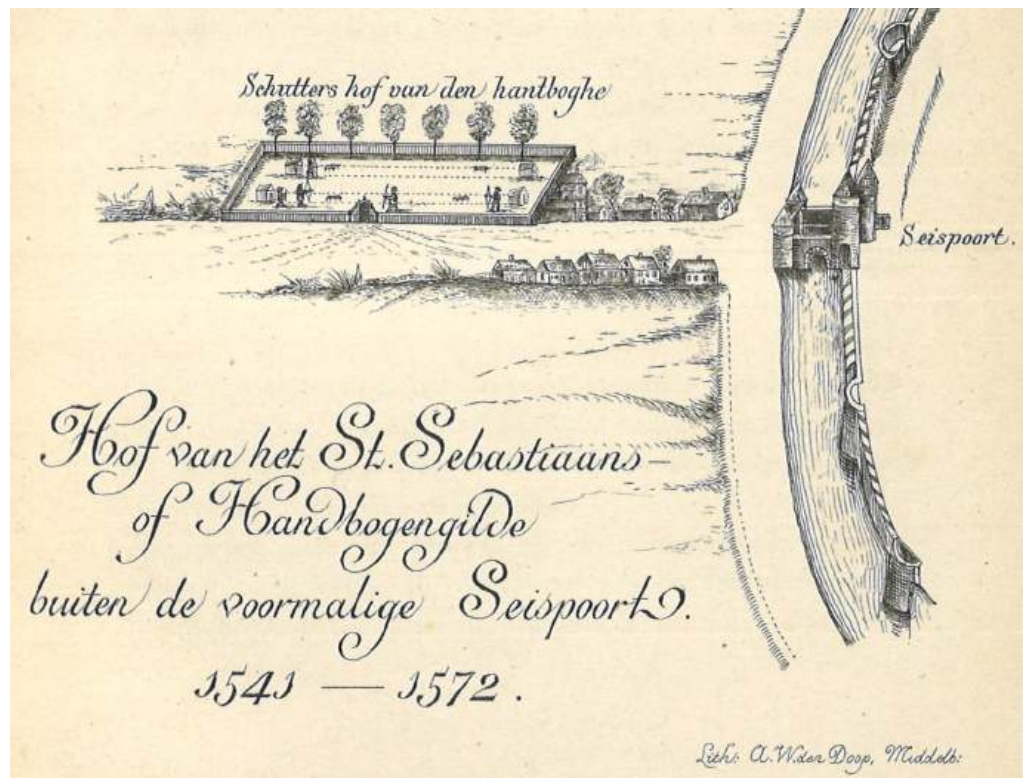 Schutters hof van den hantboghe
Seispoort.
Hof van het St. Sebastiaans-
of Handbogengilde
buiten de voormalige Seispoort.
1541 — 1572.
Lith: A. W. den Doop, Middelb: